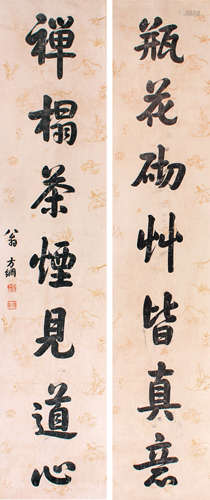 瓶花砌艸皆真意
禅榻茶煙見道心
翁方綱